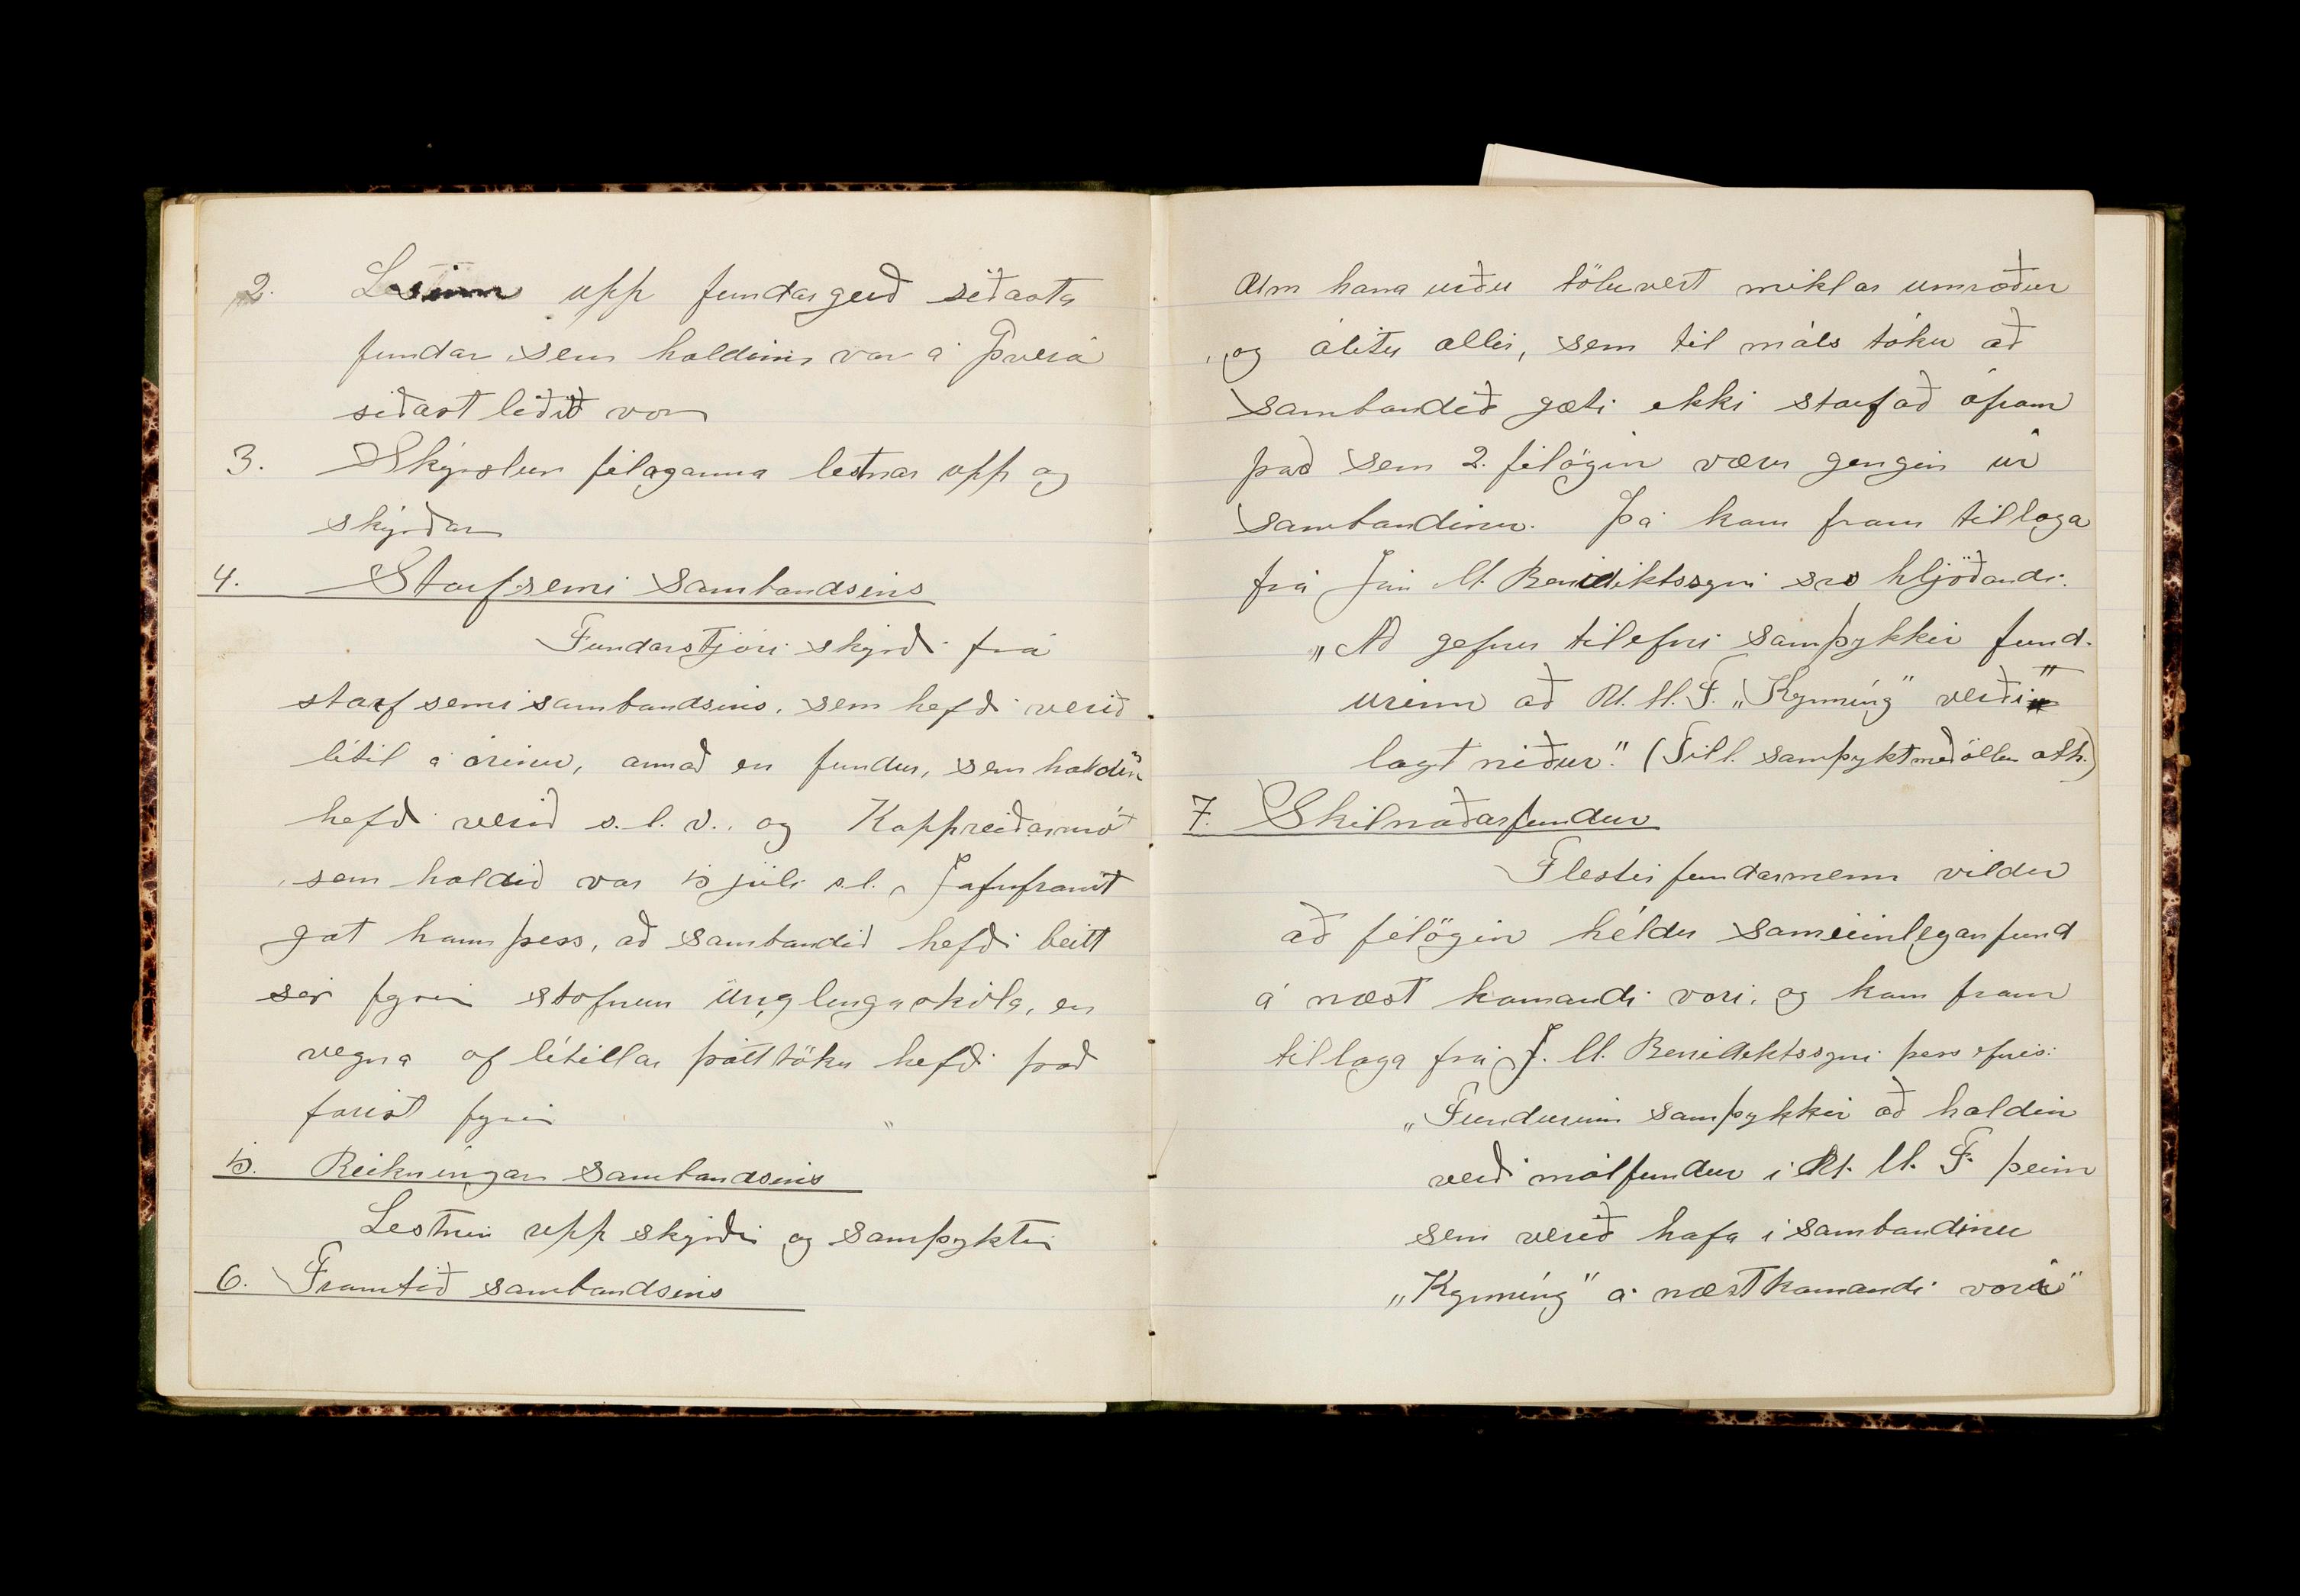 2. Lesinn upp fundargerð síðasta
fundar, sem haldinn var á Þverá
síðast liðið vor
3. Skýrslur félaganna lestnar upp og
skýrðar
4. Starfsemi sambandsins
Fundarstjóri skýrði frá
starfsemi sambandsins, sem hefði verið
lítil á árinu, annað en fundur, sem haldin
hefði verið s.l. v., og Kappreiðarmót
sem haldið var 15 júlí s.l. Jafnframt
gat hann þess, að sambandið hefði beitt
sér fyrir stofnun únglingaskóla, en
vegna of lítillar þátttöku hefði það
farist fyrir
5. Reikníngar sambandsins
Lestnir upp skýrðir og samþyktir
6. Framtíð sambandsins
Um hana urðu töluvert miklar umræður
og álitu allir, sem til máls tóku að
sambandið gæti ekki starfað áfram
það sem 2. félögin væru gengin úr
sambandinu. Þá kom fram tillaga
frá Jóni M. Benidiktssyni svo hljóðandi.
„Að gefnu tilefni samþykkir fund-
urinn að U.M.F. „Kynníng" verði"
lagt niður." (Till. samþykt með öllum atk.)
7. Skilnaðarfundur
Flestir fundarmenn vildu
að félögin héldu sameiinlegan fund
á næst komandi vori, og kom fram
tillaga frá J. M. Benidiktssyni þess efnis:
„Fundurinn samþykkir að haldin
verði málfundur í U. M. F. þeim
sem verið hafa í sambandinu
„Kynníng" á næstkomandi vori"